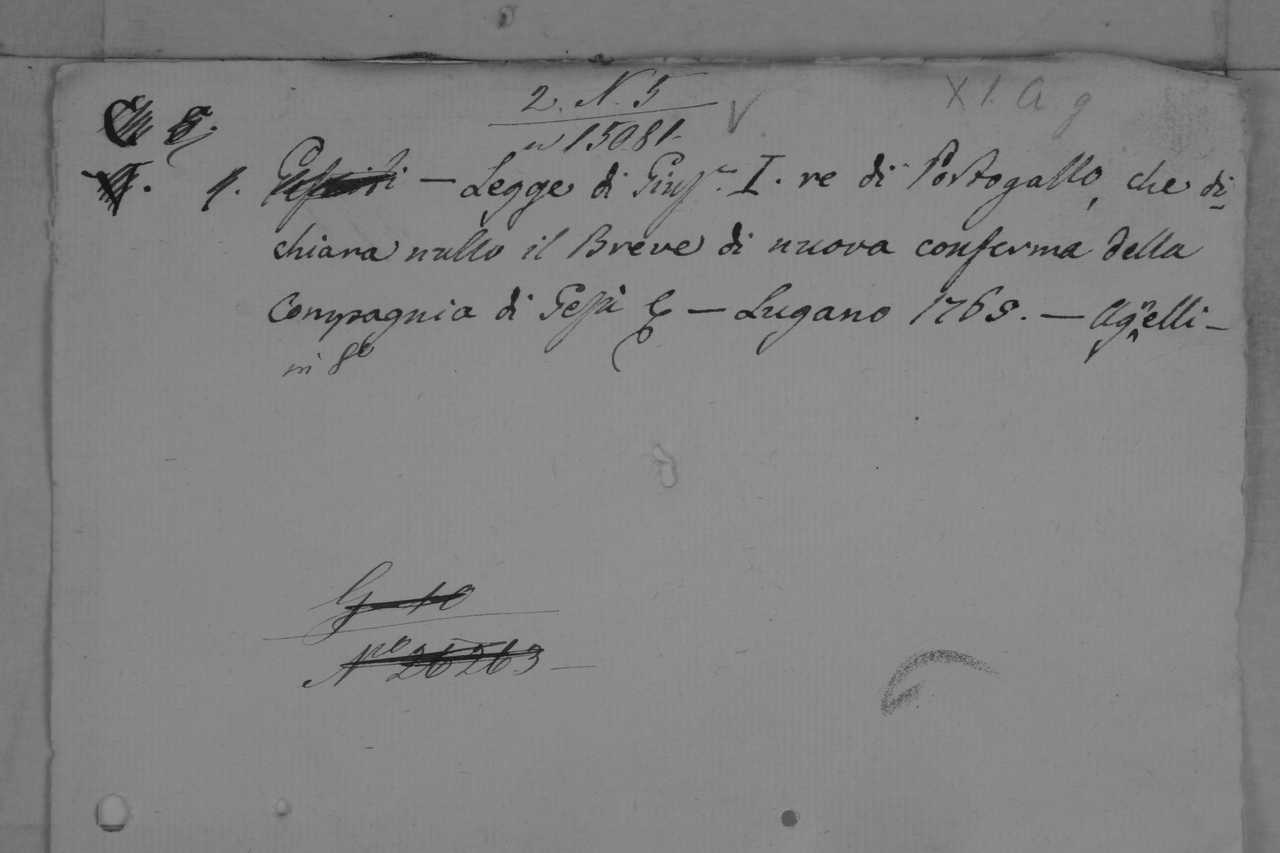 2. N. 5
X I. a g
n 15081.
1. Gesuiti — Legge di Giusᵉ I. re di Portogallo, che di
chiara nullo il Breve di nuova conferma della
Compagnia di Gesù &c — Lugano 1765. — Agnelli —
in 8º
G 10
Nº 26263